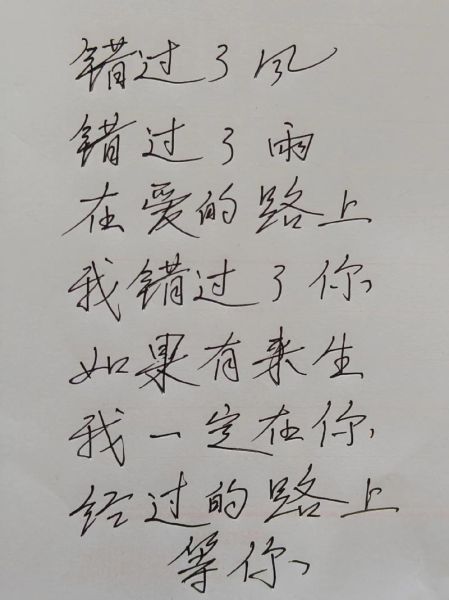 错过了风
错过了雨
在爱的路上
我错过了你
如果有来生
我一定在你
经过的路上
等你